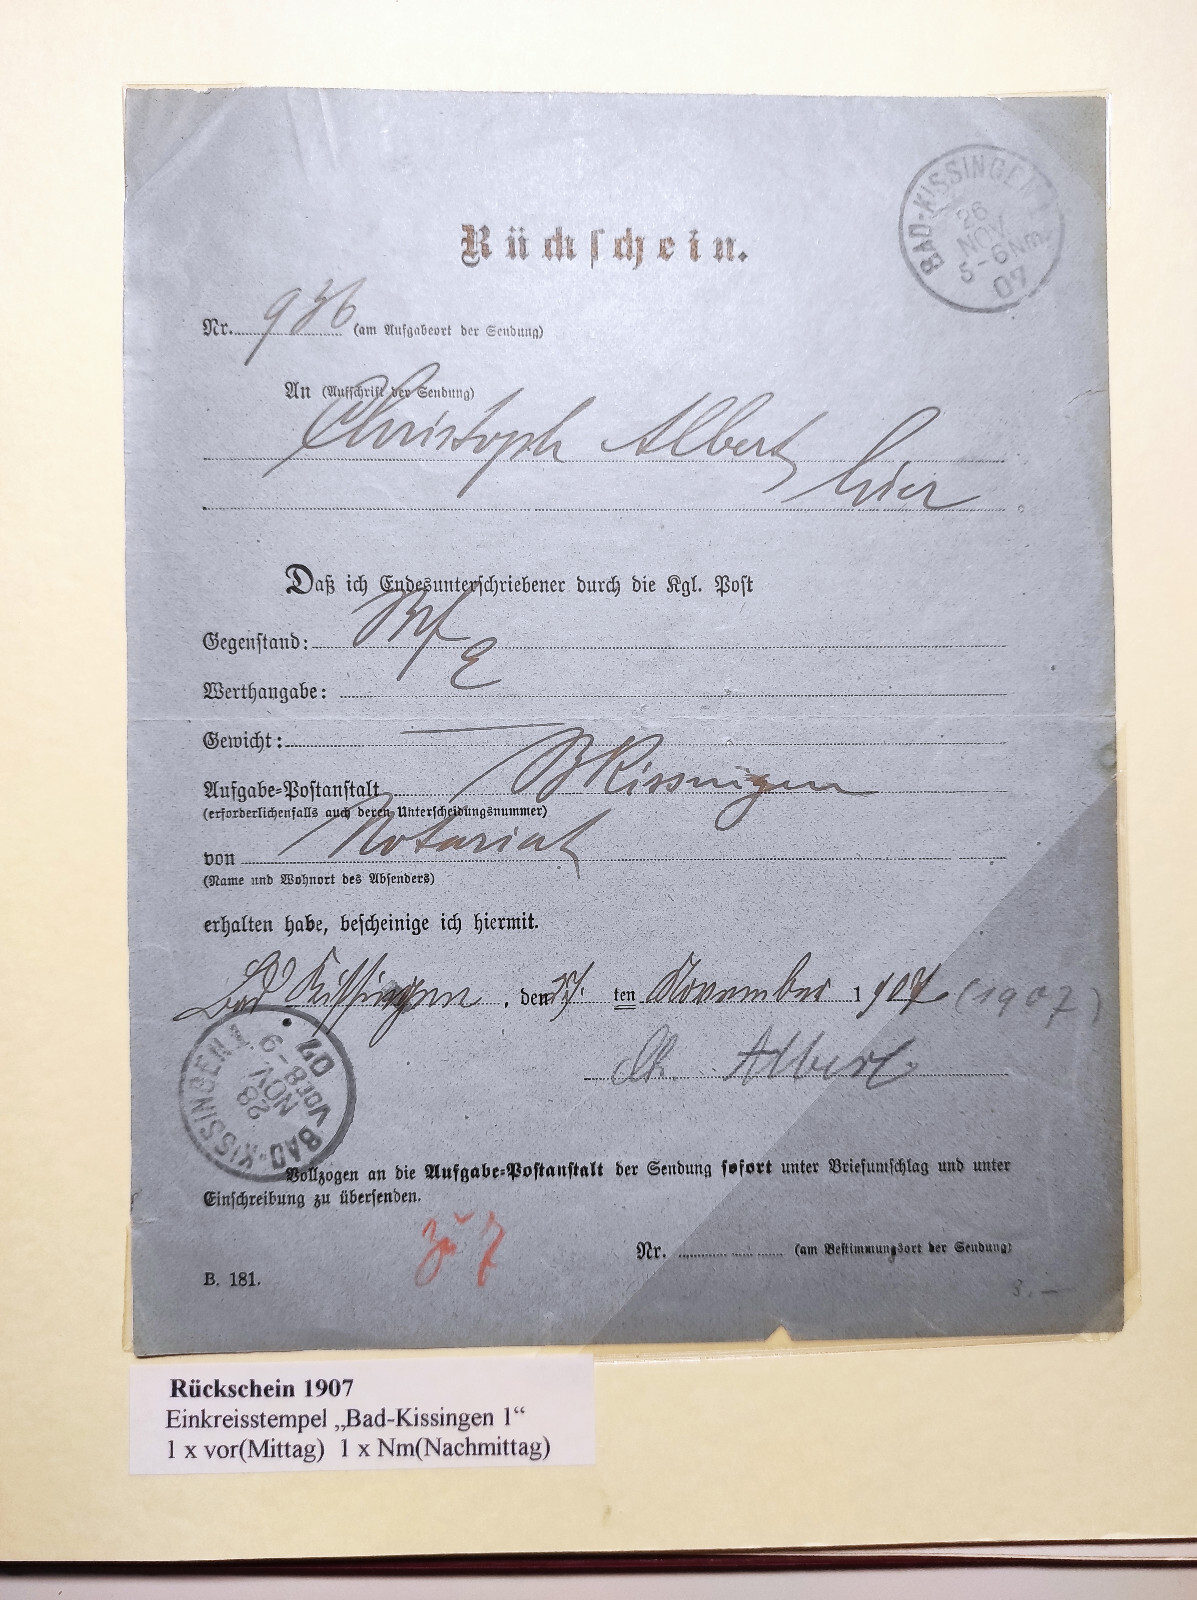 BAD-KISSINGEN 1
26
NOV
5-6 Nm
07
Rückschein.
Nr. 936 (am Aufgabeort der Sendung)
An (Aufschrift der Sendung)
Christoph Albert
hier
Daß ich Endesunterschriebener durch die Kgl. Post
Gegenstand:
Werthangabe:
Gewicht: —
Aufgabe-Postanstalt B Kissingen
(erforderlichenfalls auch deren Unterscheidungsnummer)
von Notariat
(Name und Wohnort des Absenders)
erhalten habe, bescheinige ich hiermit.
Bad Kissingen, den 27. ten November 1907 (1907)
Ch. Albert
BAD-KISSINGEN 1.
28
NOV.
VOR 8-9
07
Vollzogen an die Aufgabe-Postanstalt der Sendung sofort unter Briefumschlag und unter
Einschreibung zu übersenden.
zu 7
Nr. (am Bestimmungsort der Sendung)
B. 181.
3.—
Rückschein 1907
Einkreisstempel „Bad-Kissingen 1“
1 x vor(Mittag) 1 x Nm(Nachmittag)